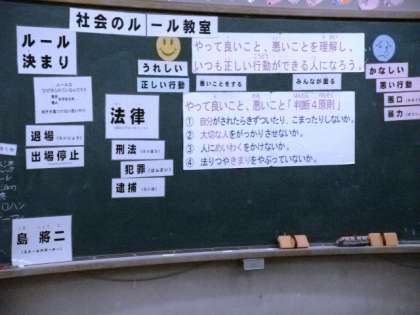 社会のルール教室
ルール
決まり
やって良いこと、悪いことを理解し、
いつも正しい行動ができる人になろう。
うれしい
かなしい
正しい行動
悪いことをする
みんなが困る
悪い行動
悪口
暴力
法律
退場
出場停止
刑法
犯罪
逮捕
やって良いこと、悪いこと「判断4原則」
① 自分がされたらきずついたり、こまったりしないか。
② 大切な人をがっかりさせないか。
③ 人にめいわくをかけないか。
④ 法りつやきまりをやぶっていないか。
島 將二